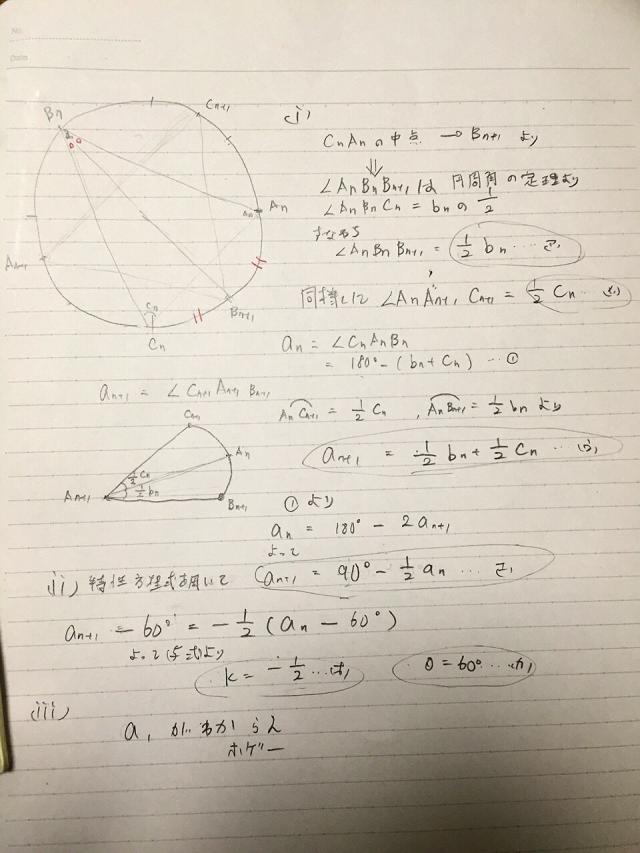 No.
Date
Bn
Cn+1
An
An+1
Bn+1
Cn
Cn
(i)
CnAnの中点 → Bn+1 より
⇓
∠AnBnBn+1は 円周角の定理より
∠AnBnCn = bnの1/2
すなわち
∠AnBnBn+1 = 1/2 bn ...
同様にして ∠AnAn+1Cn+1 = 1/2 Cn ...
an = ∠CnAnBn
= 180° - (bn + Cn) ... ①
an+1 = ∠Cn+1An+1Bn+1
AnCn+1 = 1/2 Cn , AnBn+1 = 1/2 bn より
an+1 = 1/2 bn + 1/2 Cn ...
Cn+1
An
An+1
1/2 Cn
1/2 bn
Bn+1
①より
an = 180° - 2an+1
よって
an+1 = 90° - 1/2 an ...
(ii) 特性方程式を用いて
an+1 - 60° = -1/2 (an - 60°)
よって 与式より
k = -1/2 ...
θ = 60° ...
(iii)
a1 がわからん
ホゲー